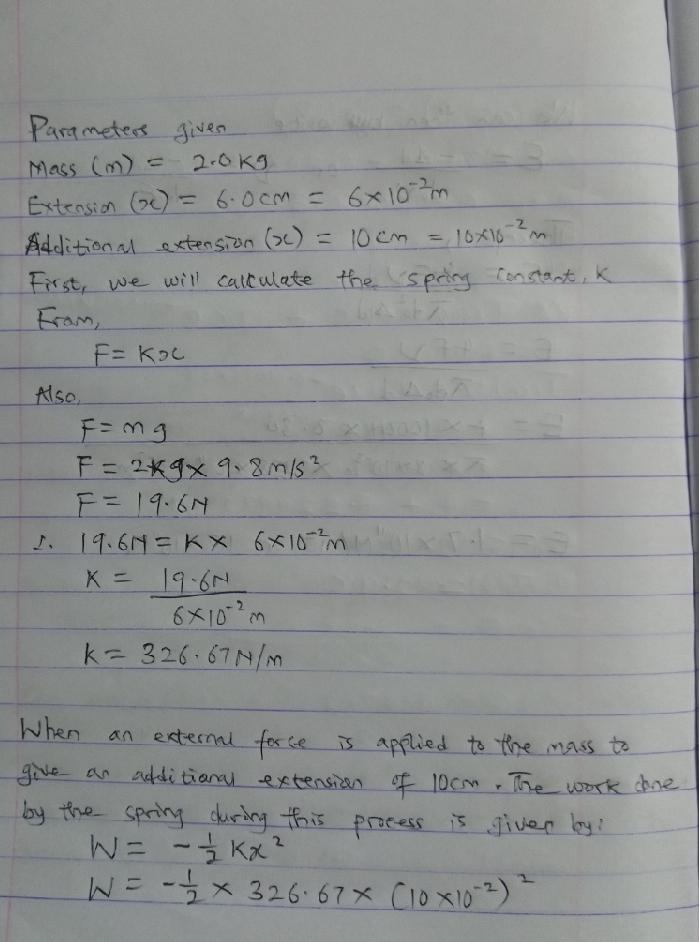 Parameters given
Mass (m) = 2.0kg
Extension (x) = 6.0cm = 6×10⁻²m
Additional extension (x) = 10cm = 10×10⁻²m
First, we will calculate the spring constant, K
From,
F= Kx
Also,
F= mg
F = 2kg× 9.8m/s²
F = 19.6N
∴ 19.6N= K× 6×10⁻²m
K = 19.6N
6×10⁻²m
k= 326.67N/m
When an external force is applied to the mass to
give an additional extension of 10cm. The work done
by the spring during this process is given by:
W= -½Kx²
W= -½ × 326.67× (10×10⁻²)²